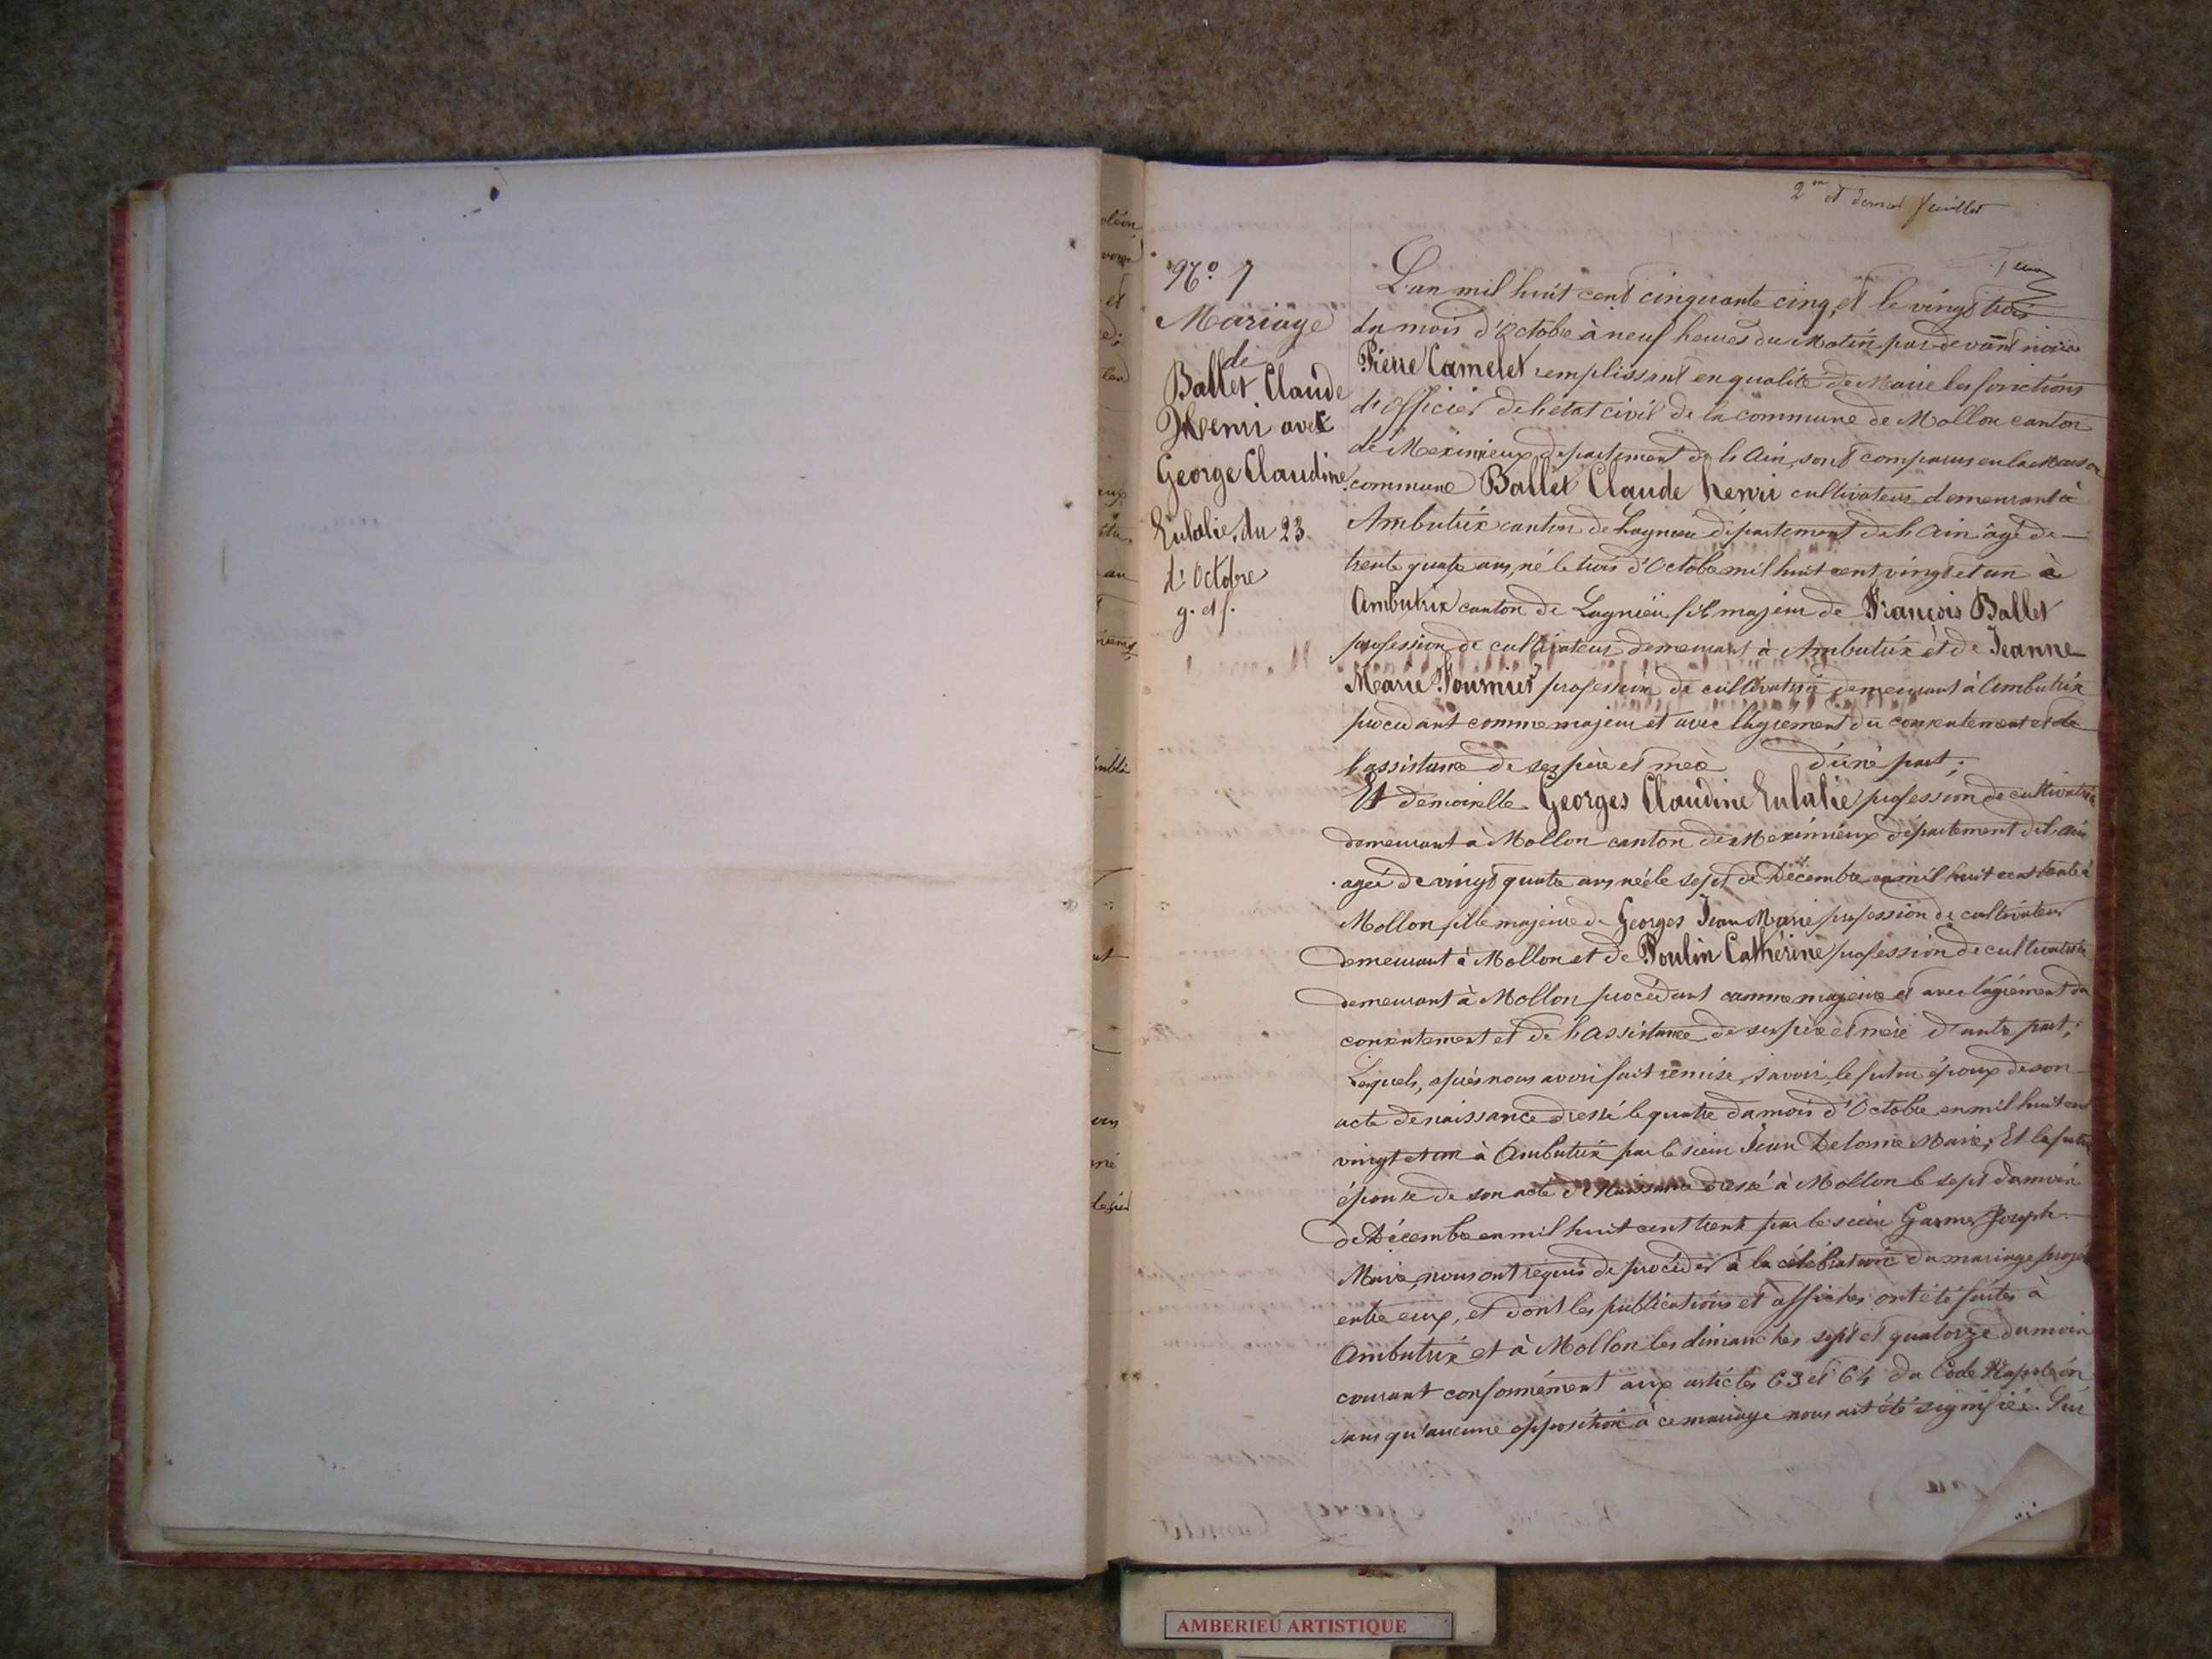 2me et dernier feuillet
No. 7
Mariage
de
Ballet Claude
Henri avec
George Claudine
Eulalie, du 23.
d'Octobre
g. et f.
L'an mil huit cent cinquante cinq, et le vingt trois
du mois d'Octobre à neuf heures du Matin par devant nous
Pierre Camelet remplissant en qualité de Maire les fonctions
d'Officier de l'état civil de la commune de Mollon canton
de Meximieux département de l'Ain, sont comparus en la Maison
commune Ballet Claude henri cultivateur demeurant à
Ambutrix canton de Lagnieu département de l'Ain âgé de
trente quatre ans, né le trois d'Octobre mil huit cent vingt et un à
Ambutrix canton de Lagnieu fils majeur de François Ballet
profession de cultivateur demeurant à Ambutrix et de Jeanne
Marie Fournier profession de cultivatrice demeurant à Ambutrix
procédant comme majeur et avec l'agrément du consentement et de
l'assistance de ses père et mère d'une part;
Et demoiselle Georges Claudine Eulalie profession de cultivatrice
demeurant à Mollon canton de Meximieux département de l'ain
agée de vingt quatre ans née le sept de Décembre mil huit cent trente à
Mollon fille majeure de Georges Jean Marie profession de cultivateur
demeurant à Mollon et de Poulin Catherine profession de cultivatrice
demeurant à Mollon procédant comme majeure et avec l'agrément du
consentement et de l'assistance de ses père et mère d'autre part;
Lesquels, après nous avoir fait remise, savoir, le futur époux de son
acte de naissance dressé le quatre du mois d'Octobre en mil huit cent
vingt et un à Ambutrix par le sieur Jean Delorme Maire, Et la future
épouse de son acte de Naissance dressé à Mollon le sept du mois
de Décembre en mil huit cent trente par le sieur Joseph
Maire, nous ont requis de procéder à la célébration du mariage projeté
entre eux, et dont les publications et affiches ont été faites à
Ambutrix et à Mollon les dimanches sept et quatorze du mois
courant conformément aux articles 63 et 64 du Code Napoléon
sans qu'aucune opposition à ce mariage nous ait été signifiée. Sur
AMBERIEU ARTISTIQUE